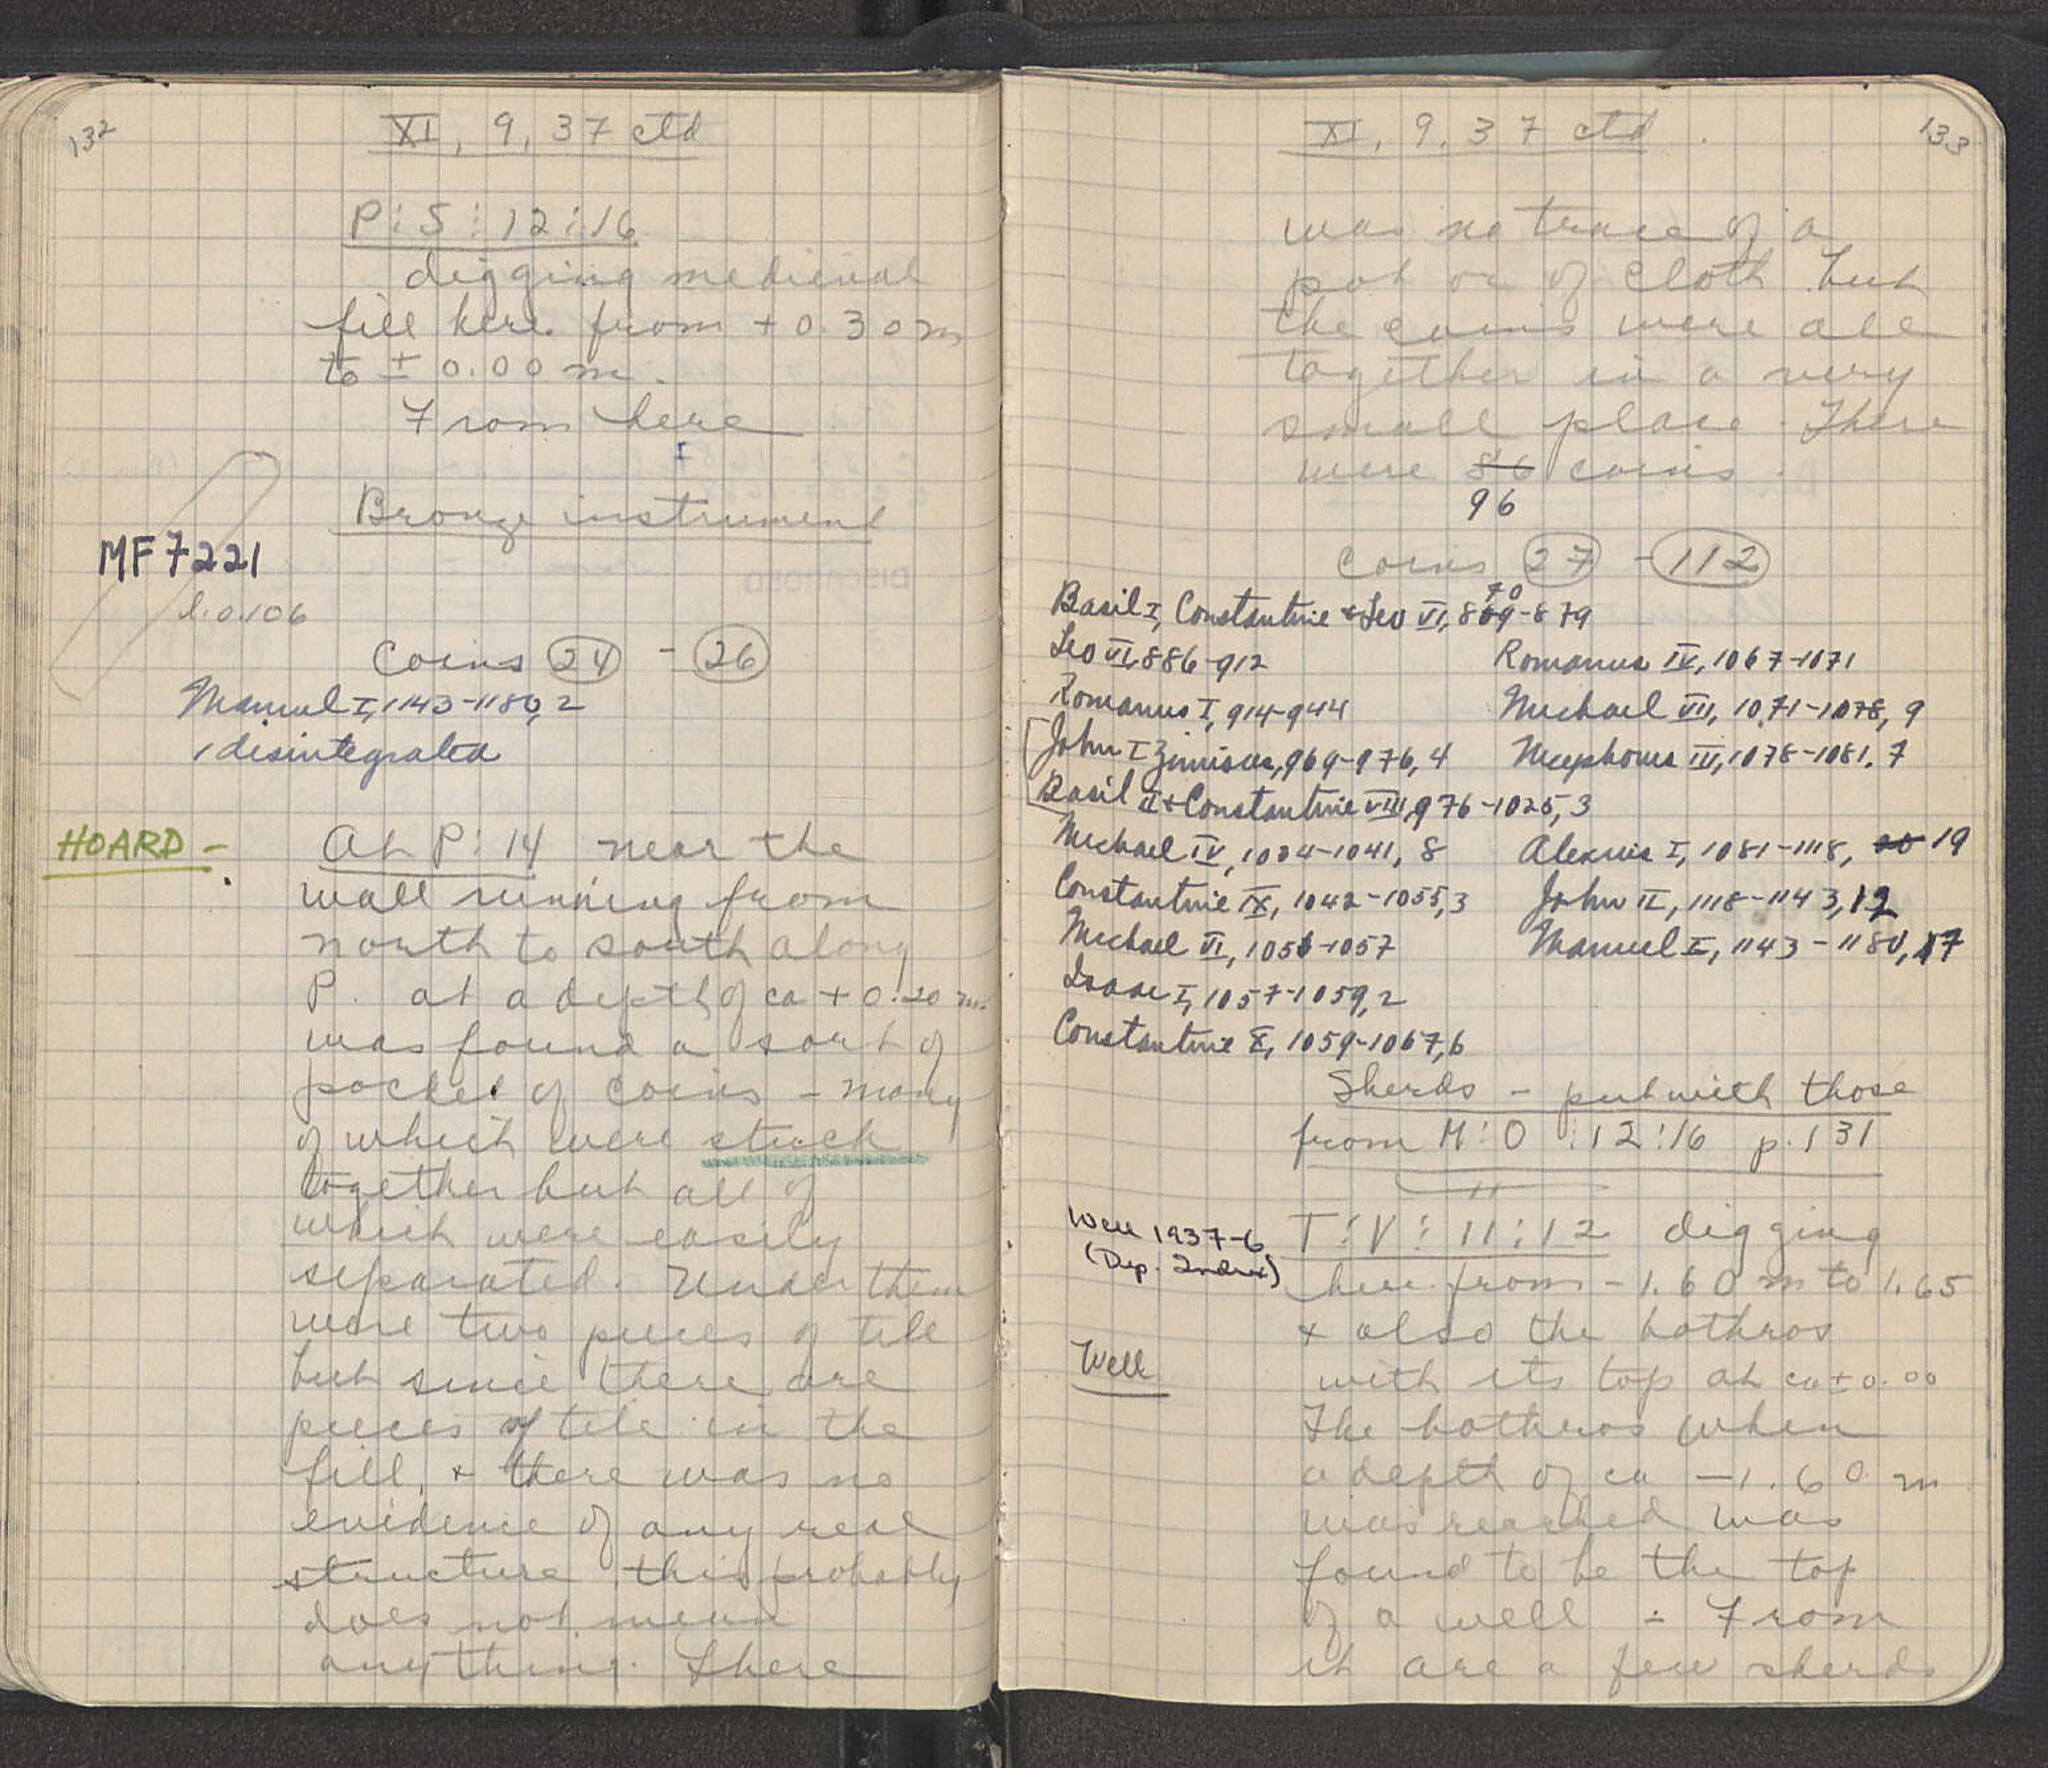 132
XI, 9, 37 ctd
P:S:12:16
digging medieval
fill here from + 0.30 m
to ± 0.00 m.
From here
Bronze instrument
MF 7221
l. 0.106
Coins 24 - 26
Manuel I, 1143-1180, 2
1 disintegrated
HOARD -
At P:14 near the
wall running from
north to south along
P. at a depth of ca + 0.20 m.
was found a sort of
pocket of coins - many
of which were stuck
together but all of
which were easily
separated. Under them
were two pieces of tile
but since there are
pieces of tile in the
fill, & there was no
evidence of any real
structure this probably
does not mean
anything. There
133
XI, 9, 37 ctd.
was no trace of a
pot or of cloth but
the coins were all
together in a very
small place. There
were 86 coins.
96
Coins 27 - 112
70
Basil I, Constantine & Leo VI, 869-879
Leo VI, 886-912
Romanus I, 914-944
John I Zimisces, 969-976, 4
Basil II & Constantine VIII, 976-1025, 3
Michael IV, 1034-1041, 8
Constantine IX, 1042-1055, 3
Michael VI, 1056-1057
Isaac I, 1057-1059, 2
Constantine X, 1059-1067, 6
Romanus IV, 1067-1071
Michael VII, 1071-1078, 9
Nicephorus III, 1078-1081, 7
Alexius I, 1081-1118, 20 19
John II, 1118-1143, 12
Manuel I, 1143-1180, 17
Sherds - put with those
from M:O:12:16 p. 131
Well 1937-6
(Dep. Index)
T:V:11:12 digging
here from - 1.60 m to 1.65
& also the bothros
Well
with its top at ca ± 0.00
The bothros when
a depth of ca - 1.60 m
was reached was
found to be the top
of a well - From
it are a few sherds